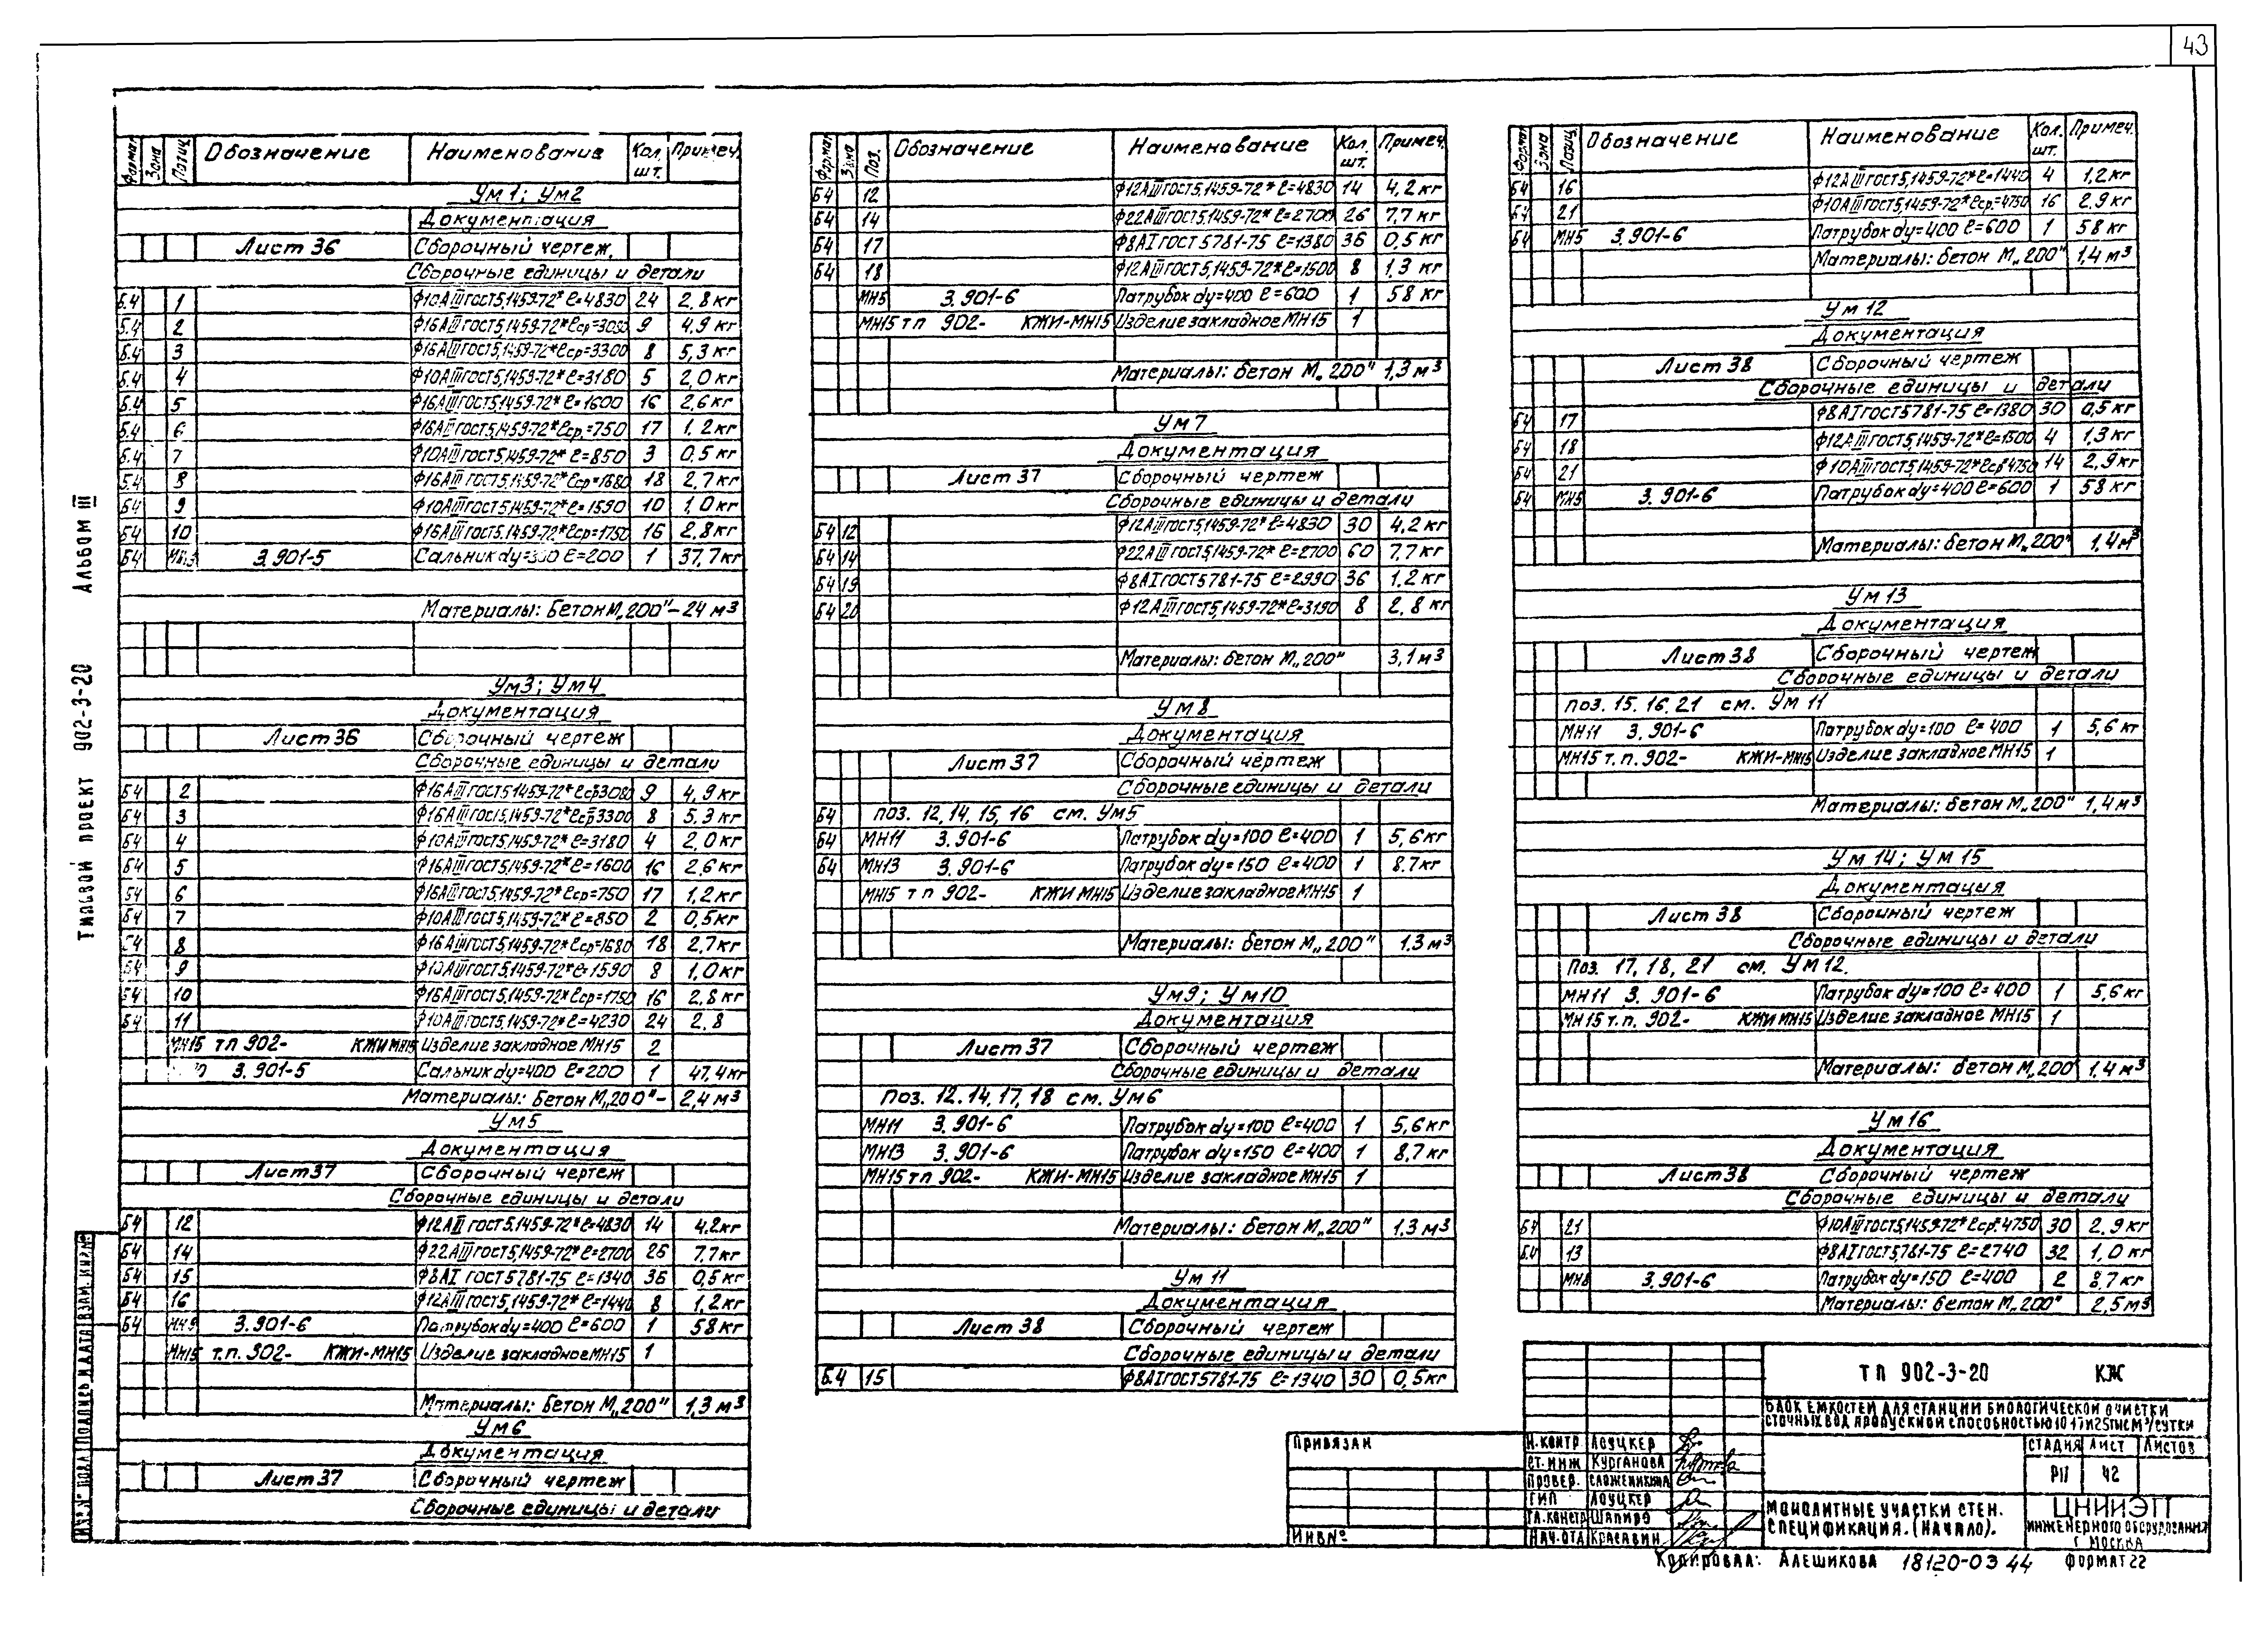 43
Альбом III
Типовой проект 902-3-20
Формат Зона Позиц. Обозначение Наименование Кол. шт. Примеч.
Ум1; Ум2
Документация
Лист 36 Сборочный чертеж.
Сборочные единицы и детали
Б.4 1 Ф10АIII ГОСТ5.1459-72* ℓ=4830 24 2,8 кг
Б.4 2 Ф16АIII ГОСТ5.1459-72* ℓср=3080 9 4,9 кг
Б.4 3 Ф16АIII ГОСТ5.1459-72* ℓср=3300 8 5,3 кг
Б.4 4 Ф10АIII ГОСТ5.1459-72* ℓ=3180 5 2,0 кг
Б.4 5 Ф16АIII ГОСТ5.1459-72* ℓ=1600 16 2,6 кг
Б.4 6 Ф16АIII ГОСТ5.1459-72* ℓср.=750 17 1,2 кг
Б.4 7 Ф10АIII ГОСТ5.1459-72* ℓ=850 3 0,5 кг
Б.4 8 Ф16АIII ГОСТ5.1459-72* ℓср=1680 18 2,7 кг
Б4 9 Ф10АIII ГОСТ5.1459-72* ℓ=1590 10 1,0 кг
Б4 10 Ф16АIII ГОСТ5.1459-72* ℓср=1750 16 2,8 кг
Б4 3.901-5 Сальник dy=300 ℓ=200 1 37,7 кг
Материалы: Бетон М„200"-24 м³
Ум3; Ум4
Документация
Лист 36 Сборочный чертеж
Сборочные единицы и детали
Б4 2 Ф16АIII ГОСТ5.1459-72* ℓср=3080 9 4,9 кг
Б4 3 Ф16АIII ГОСТ5.1459-72* ℓср=3300 8 5,3 кг
Б4 4 Ф10АIII ГОСТ5.1459-72* ℓ=3180 4 2,0 кг
Б4 5 Ф16АIII ГОСТ5.1459-72* ℓ=1600 16 2,6 кг
Б4 6 Ф16АIII ГОСТ5.1459-72* ℓср=750 17 1,2 кг
Б4 7 Ф10АIII ГОСТ5.1459-72* ℓ=850 2 0,5 кг
Б4 8 Ф16АIII ГОСТ5.1459-72* ℓср=1680 18 2,7 кг
Б4 9 Ф10АIII ГОСТ5.1459-72* ℓ=1590 8 1,0 кг
Б4 10 Ф16АIII ГОСТ5.1459-72* ℓср=1750 16 2,8 кг
Б4 11 Ф10АIII ГОСТ5.1459-72* ℓ=4230 24 2,8
МН15 тп 902- КЖИ МН15 Изделие закладное МН15 2
3.901-5 Сальник dy=400 ℓ=200 1 47,4 кг
Материалы: Бетон М„200"- 2,4 м³
Ум5
Документация
Лист 37 Сборочный чертеж
Сборочные единицы и детали
Б4 12 Ф12АII ГОСТ5.1459-72* ℓ=4830 14 4,2 кг
Б4 14 Ф22АIII ГОСТ5.1459-72* ℓ=2700 26 7,7 кг
Б4 15 Ф8АI ГОСТ5781-75 ℓ=1340 36 0,5 кг
Б4 16 Ф12АIII ГОСТ5.1459-72* ℓ=1440 8 1,2 кг
Б4 3.901-6 Патрубок dy=400 ℓ=600 1 58 кг
МН15 т.п. 902- КЖИ-МН15 Изделие закладное МН15 1
Материалы: бетон М„200" 1,3 м³
Ум6
Документация
Лист 37 Сборочный чертеж
Сборочные единицы и детали
Формат Зона Поз. Обозначение Наименование Кол. шт. Примеч.
Б4 12 Ф12АIII ГОСТ5.1459-72* ℓ=4830 14 4,2 кг
Б4 14 Ф22АIII ГОСТ5.1459-72* ℓ=2700 26 7,7 кг
Б4 17 Ф8АI ГОСТ5781-75 ℓ=1380 36 0,5 кг
Б4 18 Ф12АIII ГОСТ5.1459-72* ℓ=1500 8 1,3 кг
МН5 3.901-6 Патрубок dy=400 ℓ=600 1 58 кг
МН15 тп 902- КЖИ-МН15 Изделие закладное МН15 1
Материалы: бетон М„200" 1,3 м³
Ум7
Документация
Лист 37 Сборочный чертеж
Сборочные единицы и детали
Б4 12 Ф12АIII ГОСТ5.1459-72* ℓ=4830 30 4,2 кг
Б4 14 Ф22АIII ГОСТ5.1459-72* ℓ=2700 60 7,7 кг
Б4 19 Ф8АI ГОСТ5781-75 ℓ=2990 36 1,2 кг
Б4 20 Ф12АIII ГОСТ5.1459-72* ℓ=3190 8 2,8 кг
Материалы: бетон М„200" 3,1 м³
Ум8
Документация
Лист 37 Сборочный чертеж
Сборочные единицы и детали
Б4 поз. 12, 14, 15, 16 см. Ум5
Б4 МН11 3.901-6 Патрубок dy=100 ℓ=400 1 5,6 кг
Б4 МН13 3.901-6 Патрубок dy=150 ℓ=400 1 8.7 кг
МН15 тп 902- КЖИ МН15 Изделие закладное МН15 1
Материалы: бетон М„200" 1.3 м³
Ум9; Ум10
Документация
Лист 37 Сборочный чертеж
Сборочные единицы и детали
Поз. 12.14, 17, 18 см. Ум6
МН11 3.901-6 Патрубок dy=100 ℓ=400 1 5,6 кг
МН13 3.901-6 Патрубок dy=150 ℓ=400 1 8,7 кг
МН15 тп 902- КЖИ-МН15 Изделие закладное МН15 1
Материалы: бетон М„200" 1,3 м³
Ум 11
Документация
Лист 38 Сборочный чертеж
Сборочные единицы и детали
Б.4 15 Ф8АI ГОСТ5781-75 ℓ=1340 30 0,5 кг
Формат Зона Позиц. Обозначение Наименование Кол. шт. Примеч.
Б4 16 Ф12АIII ГОСТ5.1459-72* ℓ=1440 4 1,2 кг
Б4 21 Ф10АIII ГОСТ5.1459-72* ℓср=4750 16 2,9 кг
Б4 МН5 3.901-6 Патрубок dy=400 ℓ=600 1 58 кг
Материалы: бетон М„200" 1,4 м³
Ум 12
Документация
Лист 38 Сборочный чертеж
Сборочные единицы и детали
Б4 17 Ф8АI ГОСТ5781-75 ℓ=1380 30 0,5 кг
Б4 18 Ф12АIII ГОСТ5.1459-72* ℓ=1500 4 1,3 кг
Б4 21 Ф10АIII ГОСТ5.1459-72* ℓср=4750 14 2,9 кг
Б4 МН5 3.901-6 Патрубок dy=400 ℓ=600 1 58 кг
Материалы: бетон М„200" 1,4 м³
Ум 13
Документация
Лист 38 Сборочный чертеж
Сборочные единицы и детали
поз. 15, 16, 21 см. Ум 11
МН11 3.901-6 Патрубок dy=100 ℓ=400 1 5,6 кг
МН15 т.п. 902- КЖИ-МН15 Изделие закладное МН15 1
Материалы: бетон М„200" 1,4 м³
Ум 14; Ум 15
Документация
Лист 38 Сборочный чертеж
Сборочные единицы и детали
Поз. 17, 18, 21 см. Ум 12.
МН11 3.901-6 Патрубок dy=100 ℓ=400 1 5,6 кг
МН15 т.п. 902- КЖИ МН15 Изделие закладное МН15 1
Материалы: бетон М„200" 1,4 м³
Ум 16
Документация
Лист 38 Сборочный чертеж
Сборочные единицы и детали
Б4 21 Ф10АIII ГОСТ5.1459-72* ℓср=4750 30 2,9 кг
Б.4 13 Ф8АI ГОСТ5781-75 ℓ=2740 32 1,0 кг
МН8 3.901-6 Патрубок dy=150 ℓ=400 2 8,7 кг
Материалы: бетон М„200" 2,5 м³
ТП 902-3-20 КЖ
Блок емкостей для станции биологической очистки
сточных вод пропускной способностью 10 17 и 25 тыс м³/сутки
Стадия Лист Листов
РП 42
Монолитные участки стен.
Спецификация. (Начало).
ЦНИИЭП
инженерного оборудования
г. Москва
Привязан
Инв №
Н.контр Лоуцкер
Ст. инж Курганова
Провер.
ГИП Лоуцкер
Гл.констр Шапиро
Нач.отд Красавин
Инв. № подл. Подпись и дата Взам. инв. №
Копировал: Алешикова 18120-03 44 Формат 22